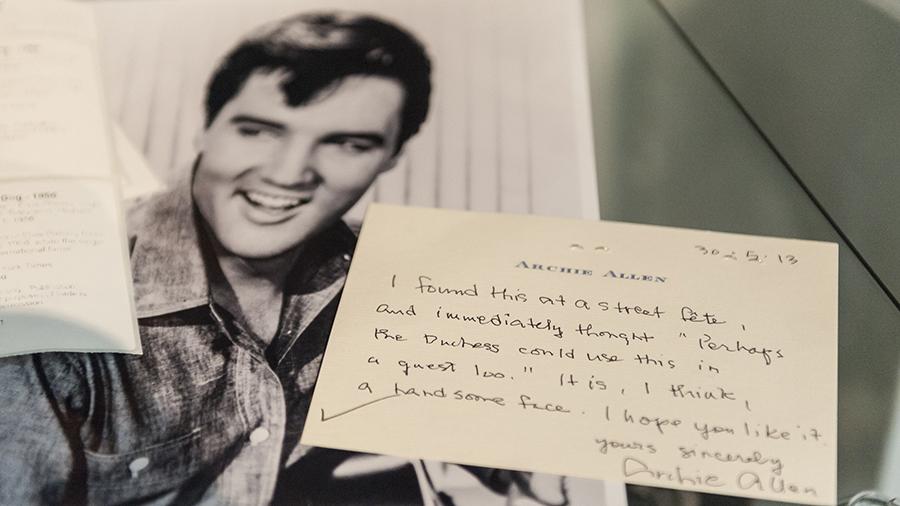 Dog - 1956
30 : 5 : 13
ARCHIE ALLEN
I found this at a street fête,
and immediately thought "Perhaps
the Duchess could use this in
a guest loo." It is, I think,
a handsome face. I hope you like it.
yours sincerely
Archie Allen